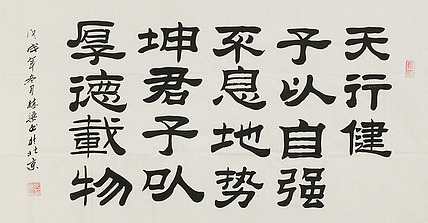 天行健
子以自强
不息地势
坤君子以
厚德載物
戊戌年冬月书於北京